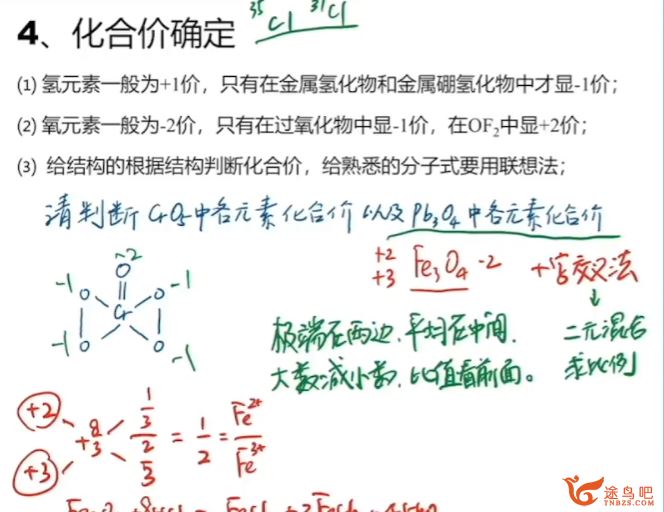 4、化合价确定 ³⁵Cl ³⁷Cl
(1) 氢元素一般为+1价，只有在金属氢化物和金属硼氢化物中才显-1价；
(2) 氧元素一般为-2价，只有在过氧化物中显-1价，在OF₂中显+2价；
(3) 给结构的根据结构判断化合价，给熟悉的分子式要用联想法；
请判断 CrO₅中各元素化合价 以及 Pb₃O₄中各元素化合价
-2
O
-1 O O -1
Cr
-1 O O -1
+2
+3 Fe₃O₄ -2 十字交叉法
极端在两边，平均在中间， 二元混合
大数减小数，比值看前面。 求比例
+2 1/3
+8/3 = 1/2 = Fe²⁺/Fe³⁺
+3 2/3
途鸟吧
TNBZS.COM